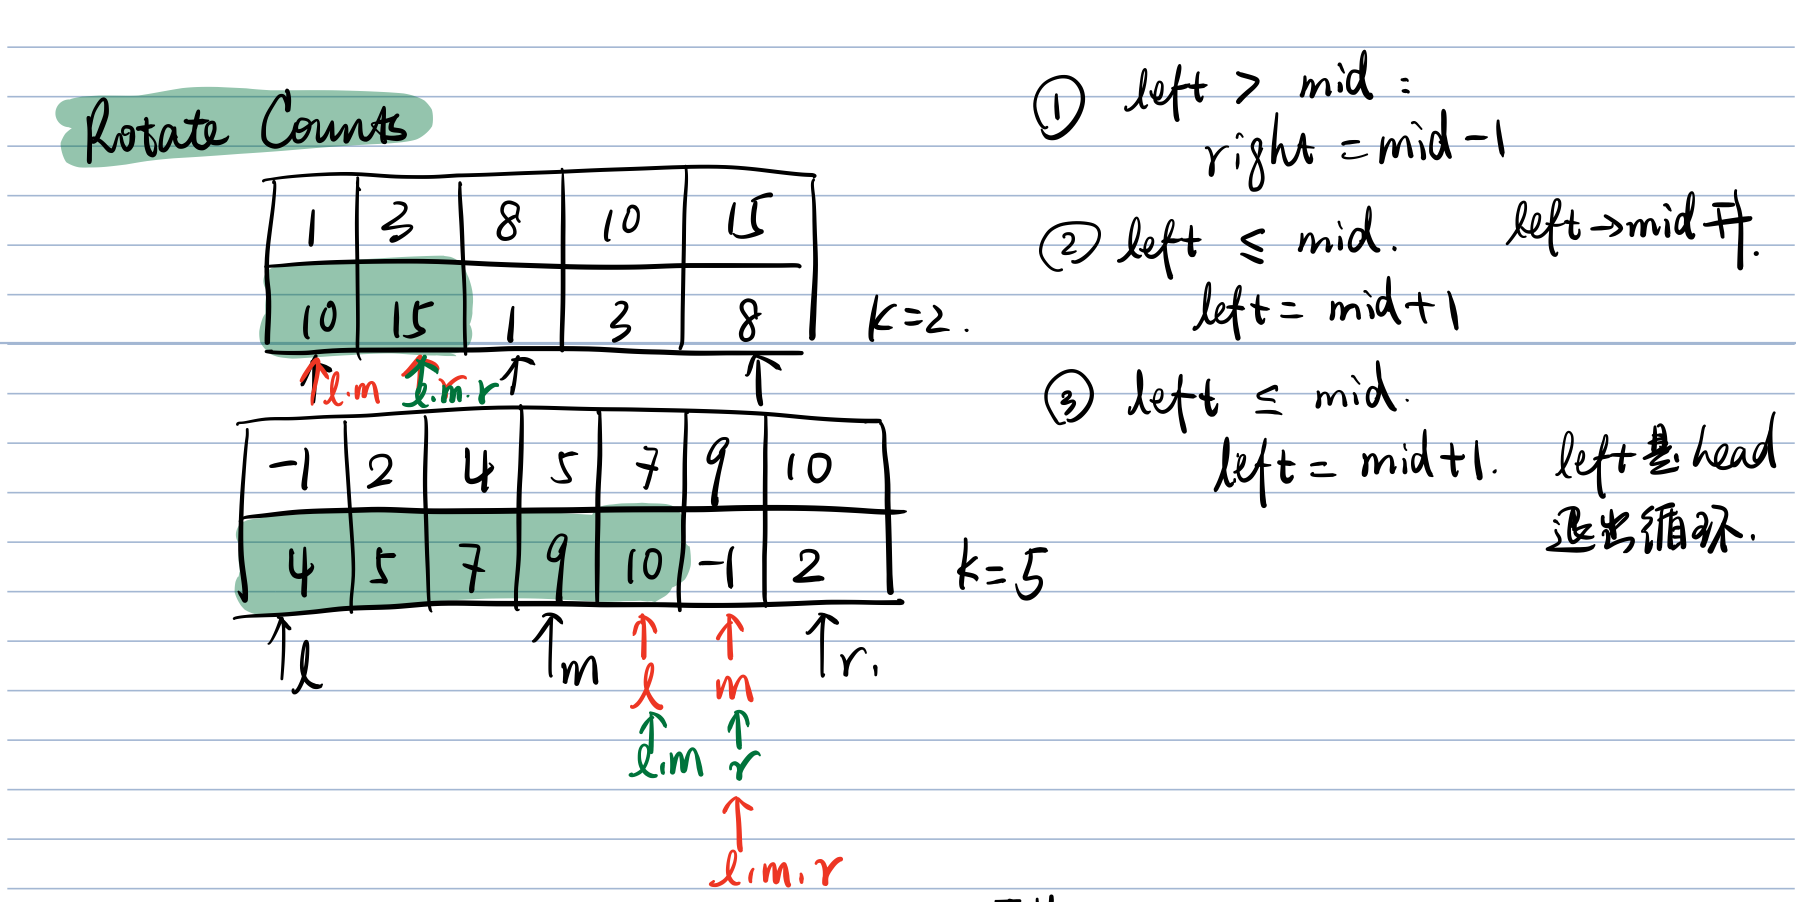 Rotate Counts
1 3 8 10 15
10 15 1 3 8 K=2.
l.m r l.m.r
-1 2 4 5 7 9 10
4 5 7 9 10 -1 2 K=5
l m r.
l m
l.m r
l.m.r
① left > mid :
right = mid-1
② left ≤ mid. left→mid升.
left = mid+1
③ left ≤ mid.
left = mid+1. left是 head
退出循环.